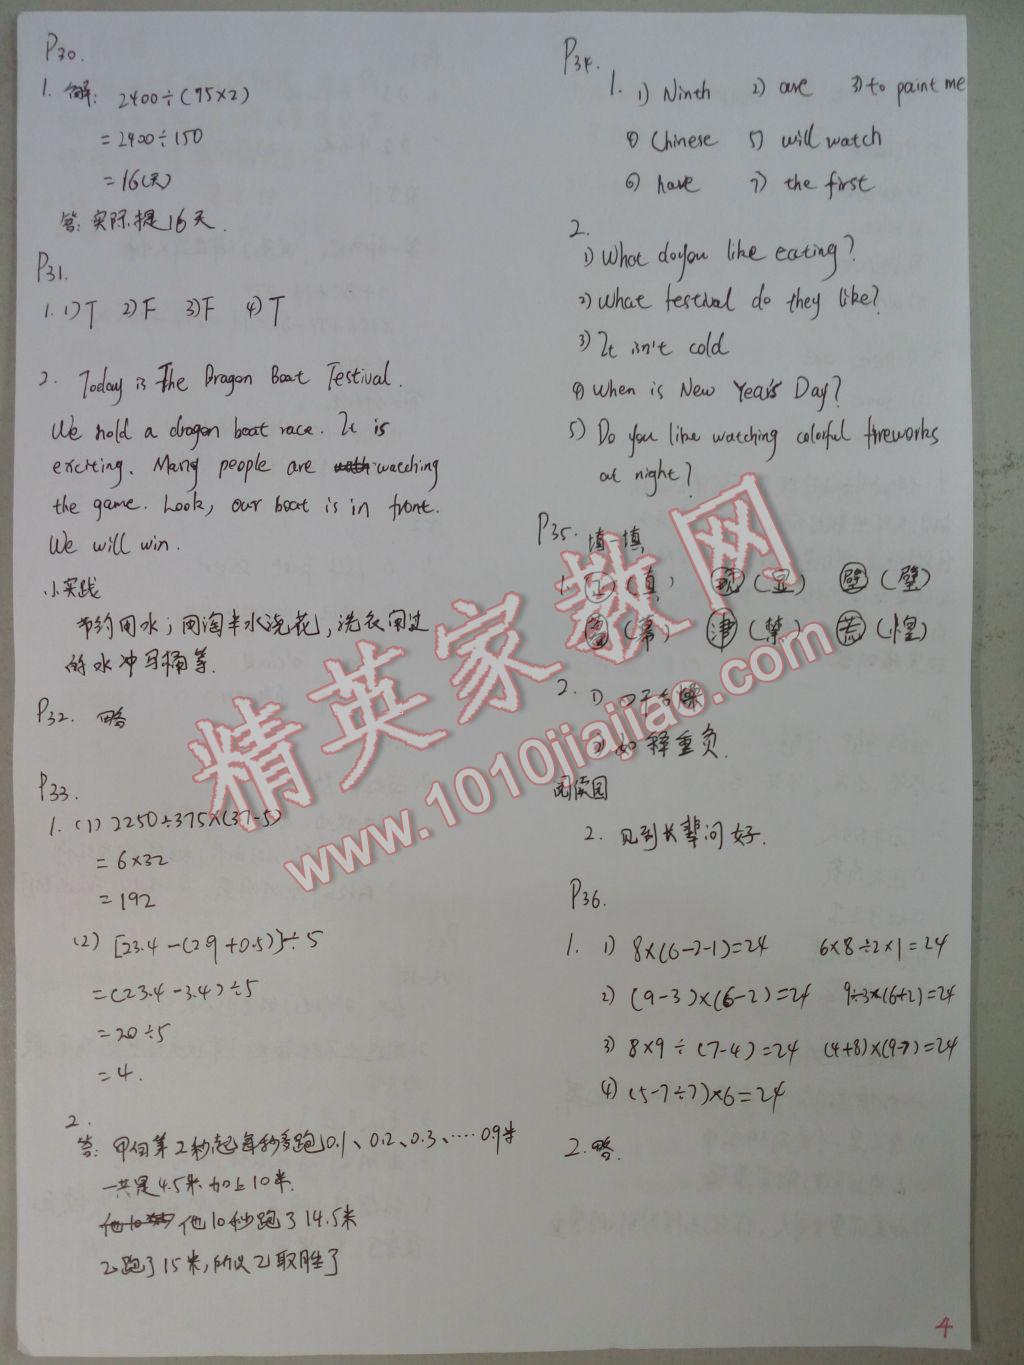 P30.
1. 解: 2400÷(75×2)
=2400÷150
=16(天)
答: 实际提16天.
P31.
1. 1) T 2) F 3) F 4) T
2. Today is The Dragon Boat Festival.
We hold a dragon boat race. It is
exciting. Many people are watching
the game. Look, our boat is in front.
We will win.
小实践
节约用水; 用淘米水浇花, 洗衣用过
的水冲马桶等.
P32. 略
P33.
1. (1) 2250÷375×(37-5)
=6×32
=192
(2) [23.4-(2.9+0.5)]÷5
=(23.4-3.4)÷5
=20÷5
=4.
2.
答: 甲自第2秒起每秒多跑0.1、0.2、0.3、····0.9米
一共是4.5米 加上10米.
他10秒跑了14.5米
乙跑了15米, 所以乙取胜了
P34.
1. 1) Ninth 2) are 3) to paint me
4) Chinese 5) will watch
6) have 7) the first
2.
1) What do you like eating?
2) What festival do they like?
3) It isn't cold
4) When is New Year's Day?
5) Do you like watching colorful fireworks
at night?
P35. 填一填
1. (真) (豆) 壁 (璧)
(幕) 津 (禁) 荒 (煌)
2. 1) 口干舌燥
2) 如释重负.
阅读园
2. 见到长辈问好.
P36.
1. 1) 8×(6-2-1)=24 6×8÷2×1=24
2) (9-3)×(6-2)=24 9÷3×(6+2)=24
3) 8×9÷(7-4)=24 (4+8)×(9-7)=24
4) (5-7÷7)×6=24
2. 略.
精英家教网
www.1010jiajiao.com
4